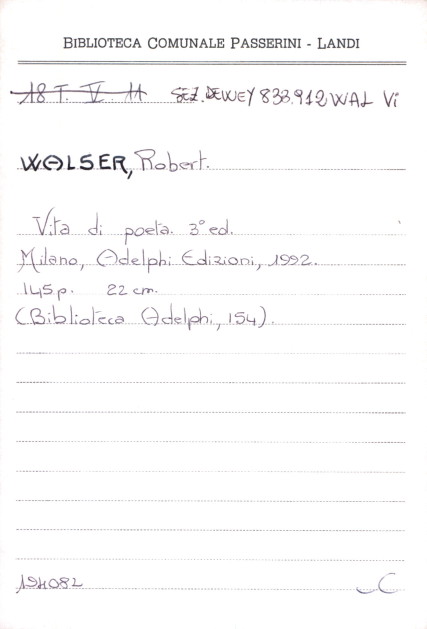 BIBLIOTECA COMUNALE PASSERINI - LANDI
18 T. V. 11 SEZ. DEWEY 833.912 WAL Vi
WALSER, Robert.
Vita di poeta. 3° ed.
Milano, Adelphi Edizioni, 1992.
145 p. 22 cm.
(Biblioteca Adelphi, 154).
194082
C